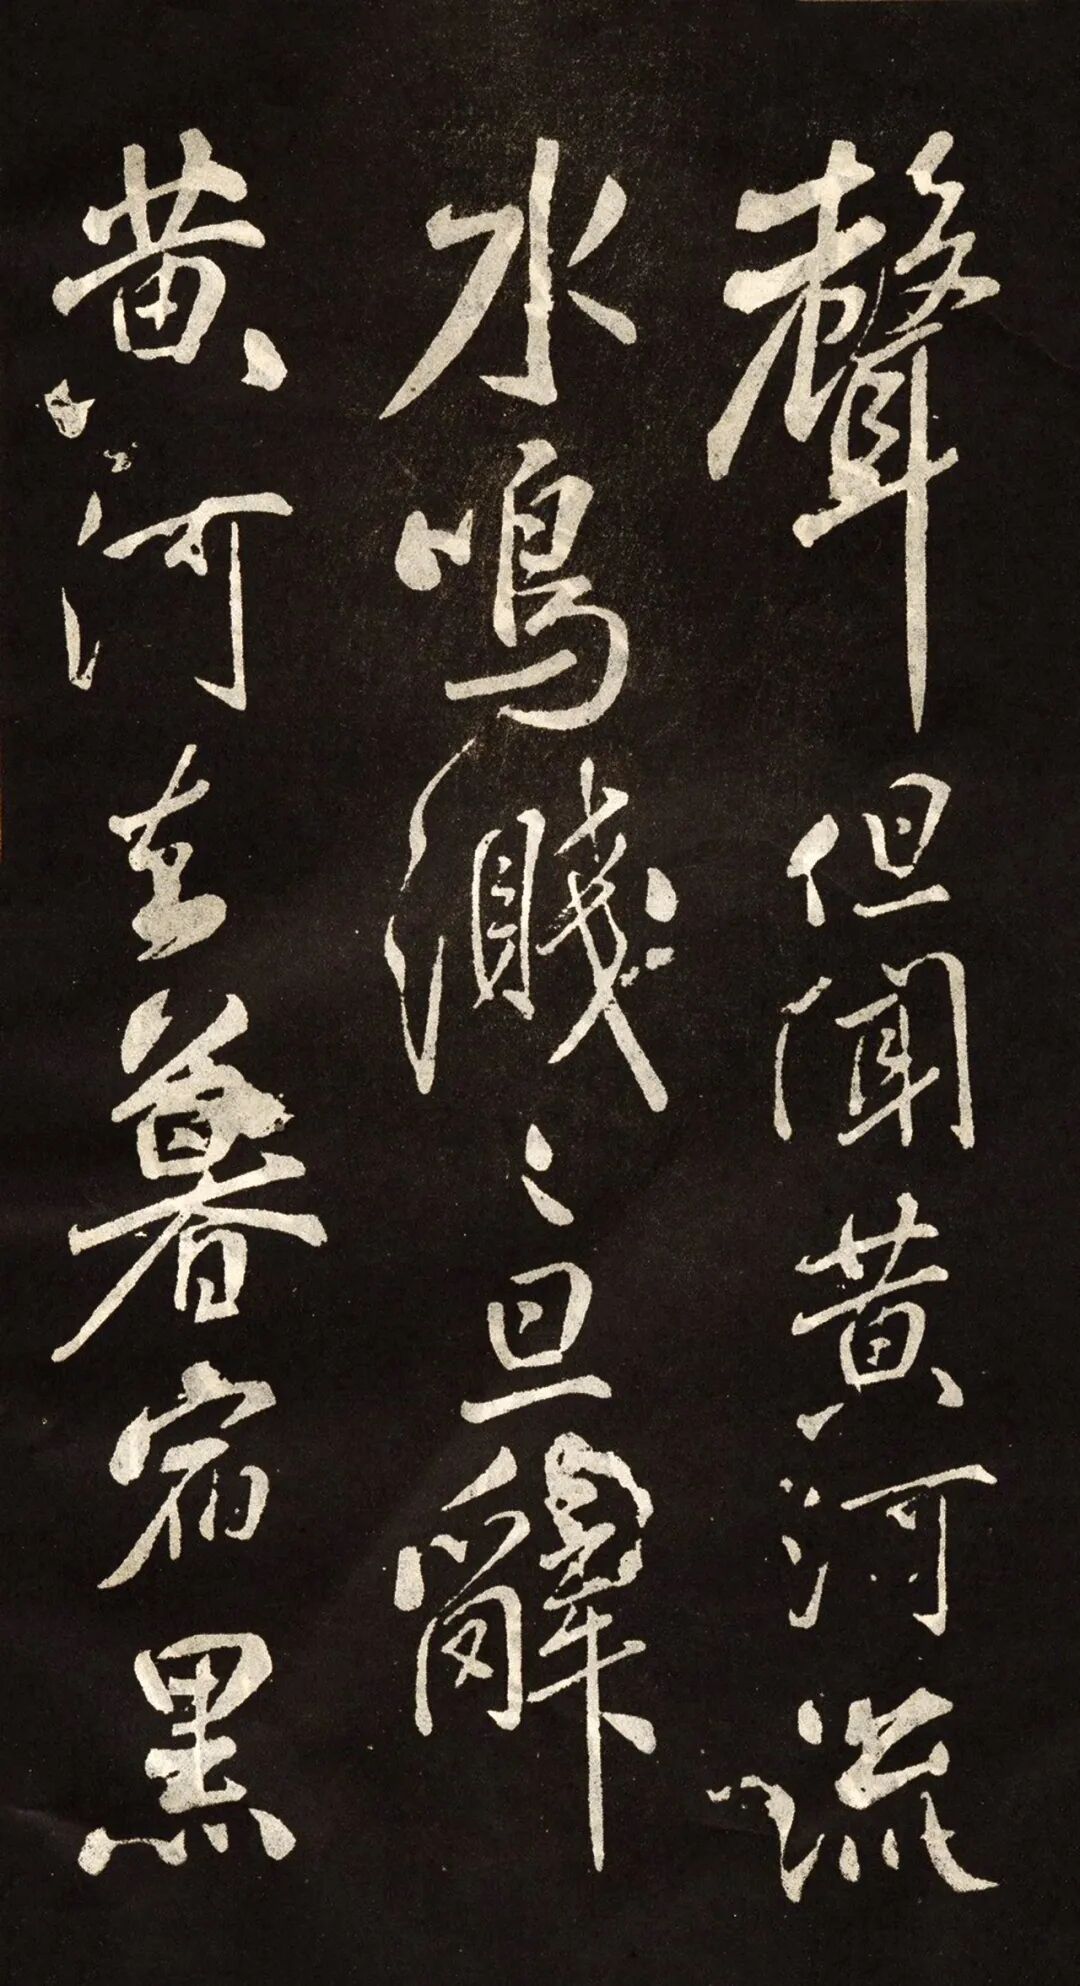 聲但聞黄河流
水鳴濺〻旦辭
黄河去暮宿黑